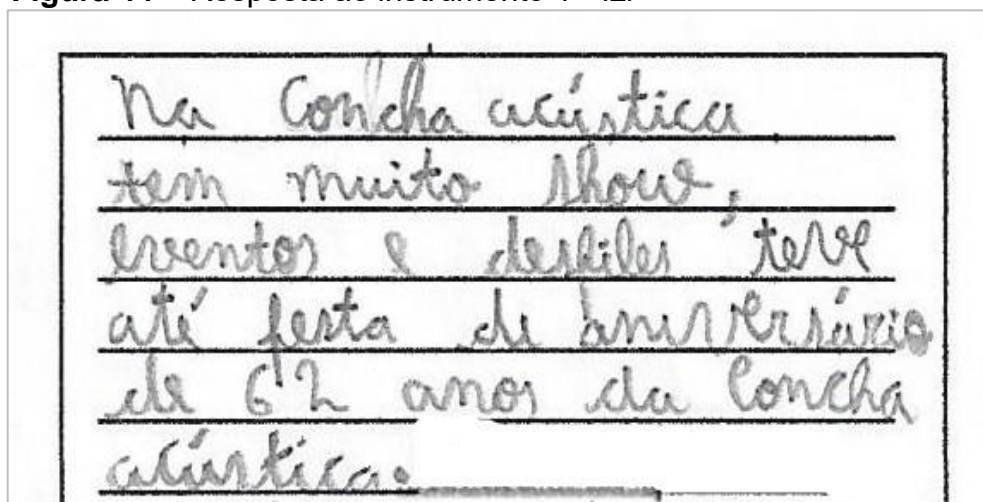 Na Concha acústica
tem muito show,
eventos e desfiles teve
até festa de aniversário
de 62 anos da Concha
acústica.